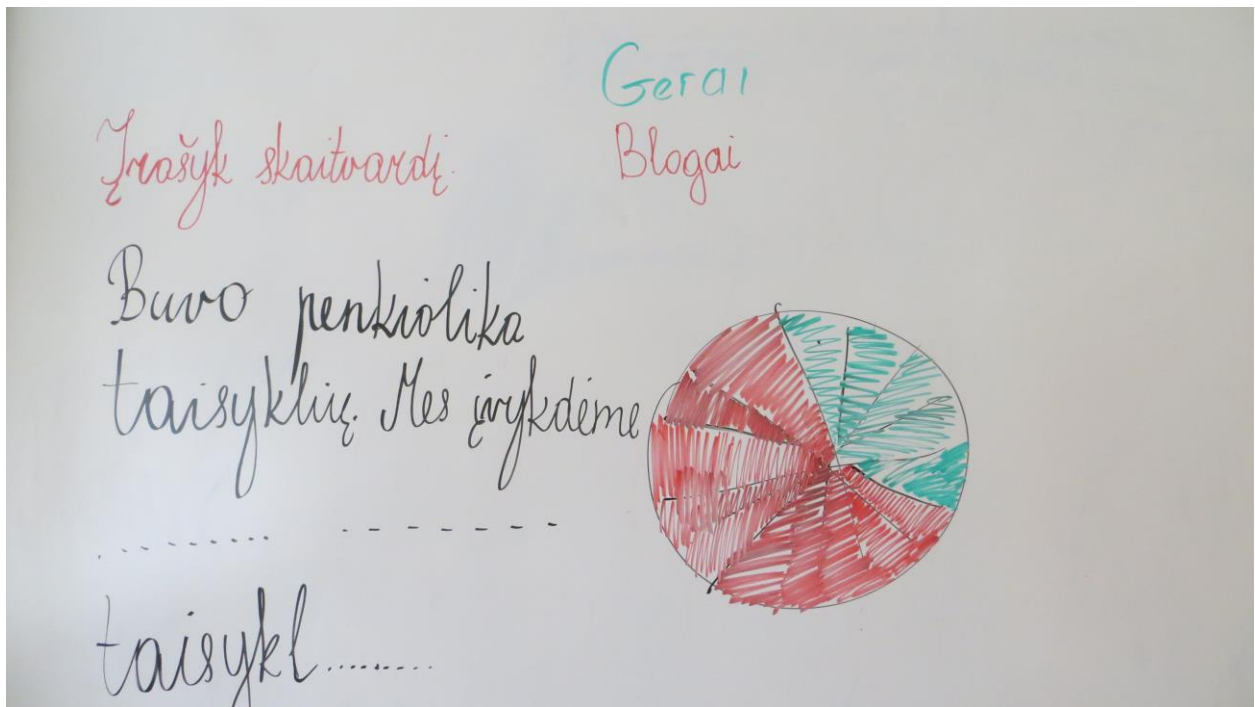 Gerai
Įrašyk skaitvardį.
Blogai
Buvo penkiolika
taisyklių. Mes įvykdėme
.......... - - - - - - -
taisykl.........